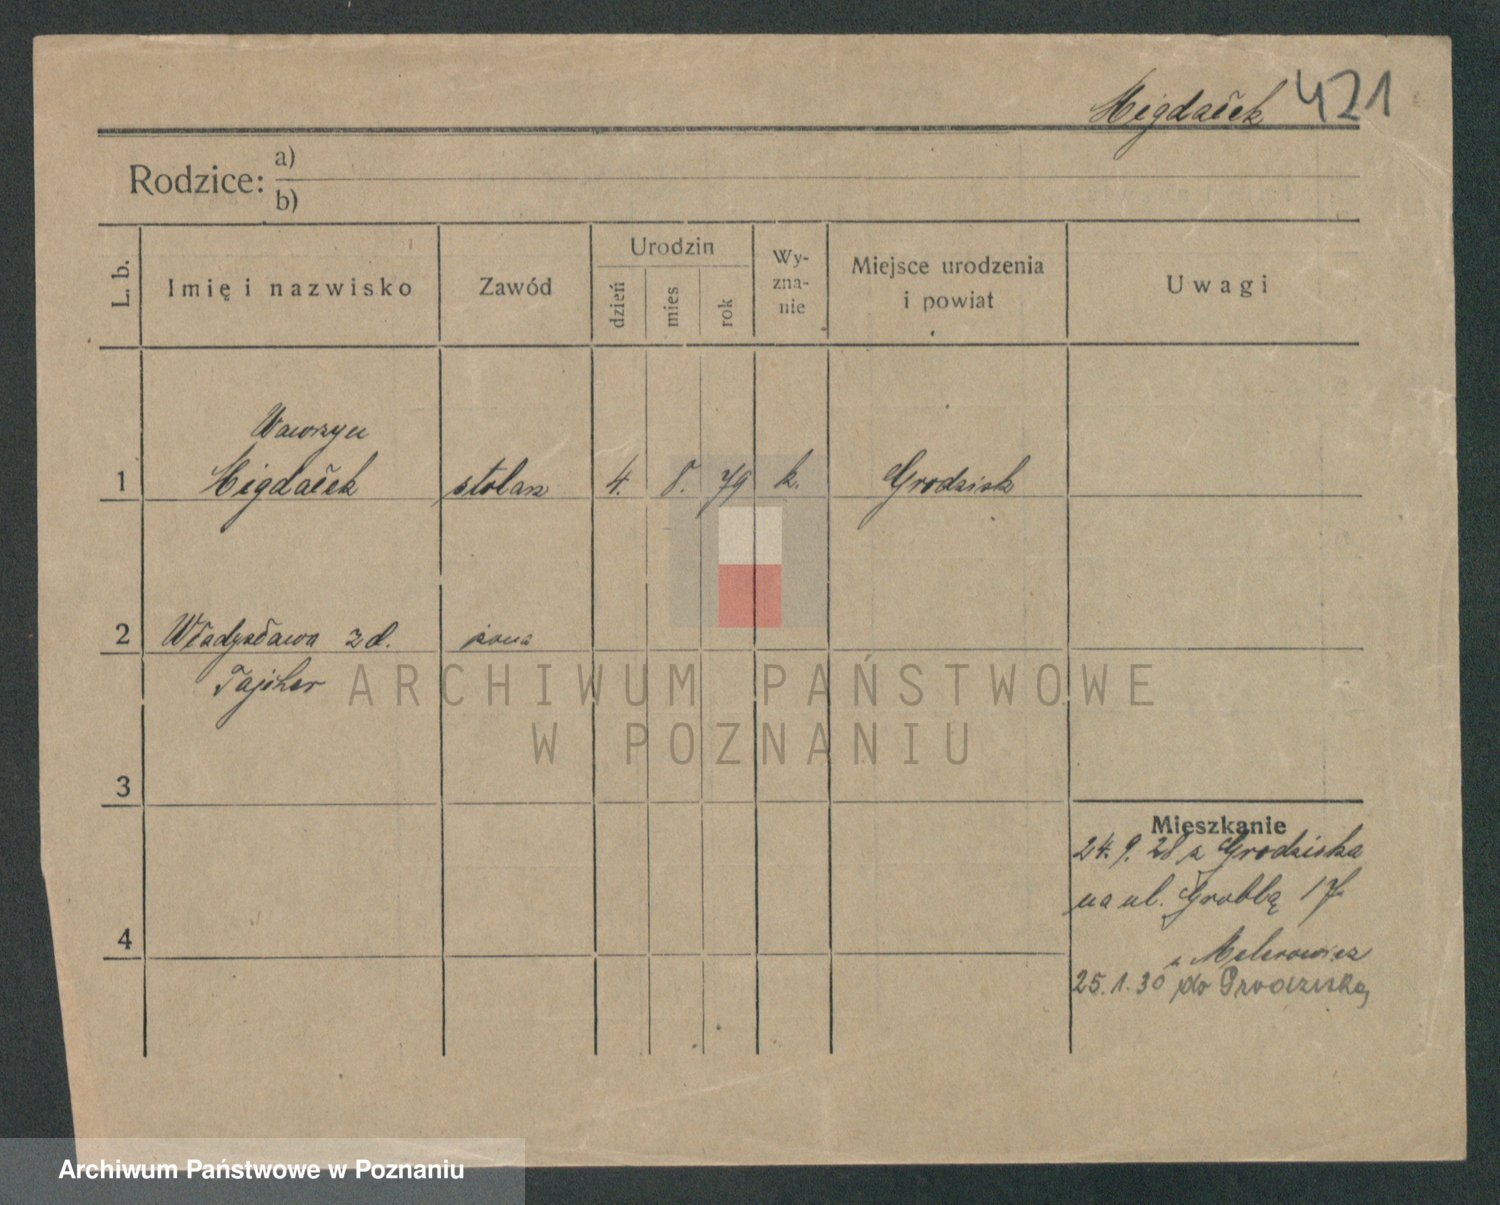 Migdałek 421
Rodzice: a)
b)
L. b.
Imię i nazwisko
Zawód
Urodzin
dzień
mies
rok
Wy-
zna-
nie
Miejsce urodzenia
i powiat
Uwagi
Wawrzyn
1 Migdałek stolarz 4. 8. 79 k. Grodzisk
2 Władysława z d. żona
Tajcher
3
4
Mieszkanie
24. 9. 28 z Grodziska
na ul. Groblą 17
25.1.30 do Grodziska,
ARCHIWUM PAŃSTWOWE
W POZNANIU
Archiwum Państwowe w Poznaniu